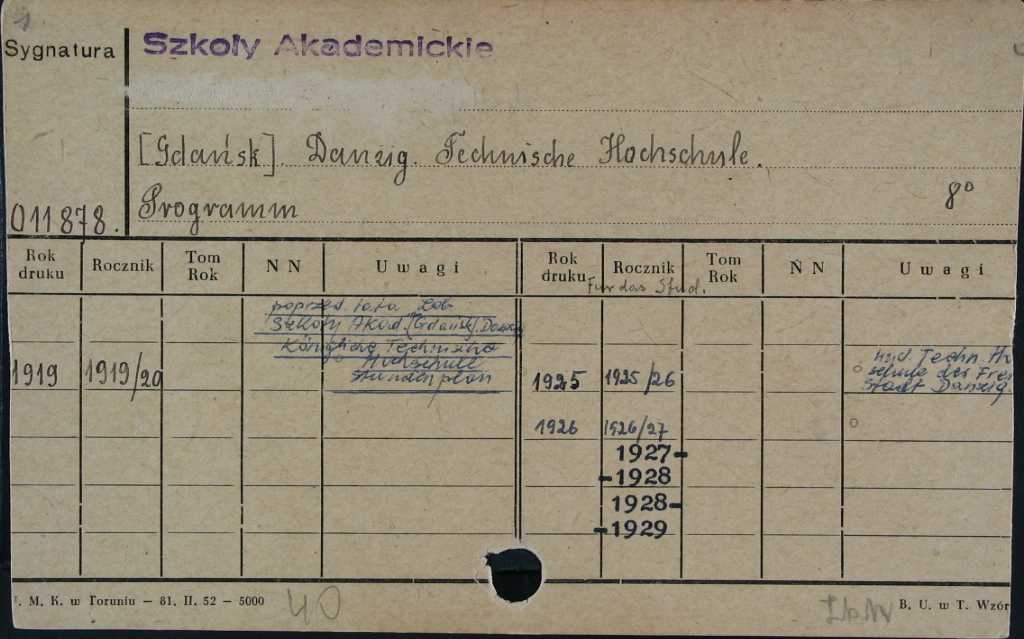 Sygnatura
Szkoły Akademickie
[Gdańsk]. Danzig. Technische Hochschule.
Programm
8º
011878.
Rok druku Rocznik Tom Rok N N Uwagi Rok druku Rocznik Tom Rok N N Uwagi
Für das Stud.
poprzed. lata zob.
Szkoły Akad. [Gdańsk]. Danzig
Königliche Technische
Hochschule
Stundenplan
1919 1919/20
1925 1925/26
Techn. Ho
schule der Frei
Stadt Danzig.
1926 1926/27
1927-
-1928
1928-
-1929
. M. K. w Toruniu — 81. II. 52 — 5000
40
B. U. w T. Wzór